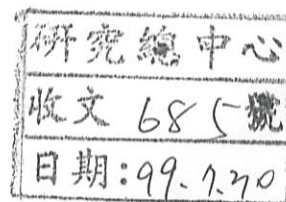 研究總中心
收文 685 號
日期:99.7.20